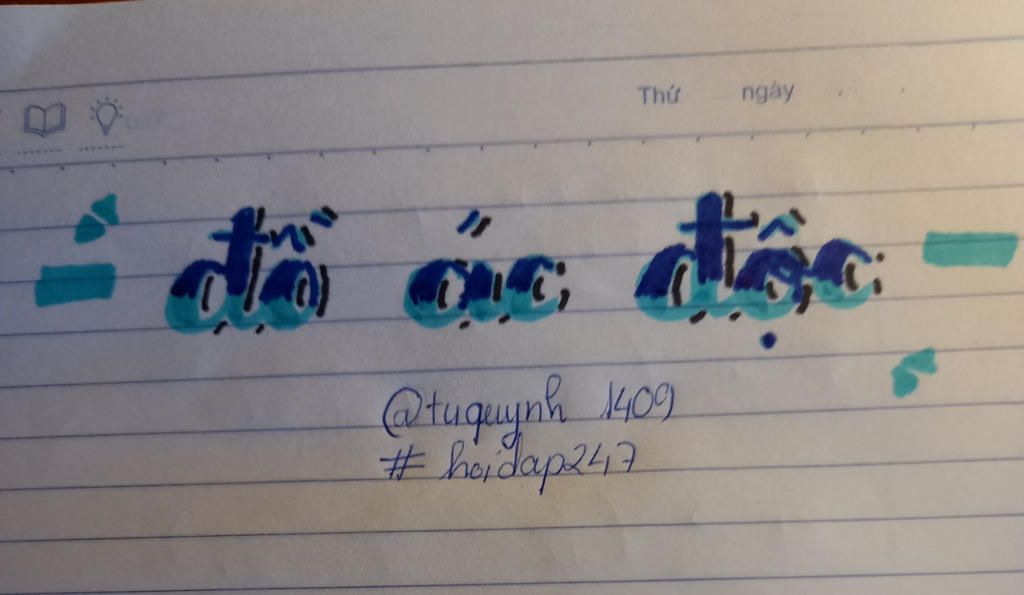 Thứ ngày
đồ ác độc
@tuquynh 1409
# hoidap247